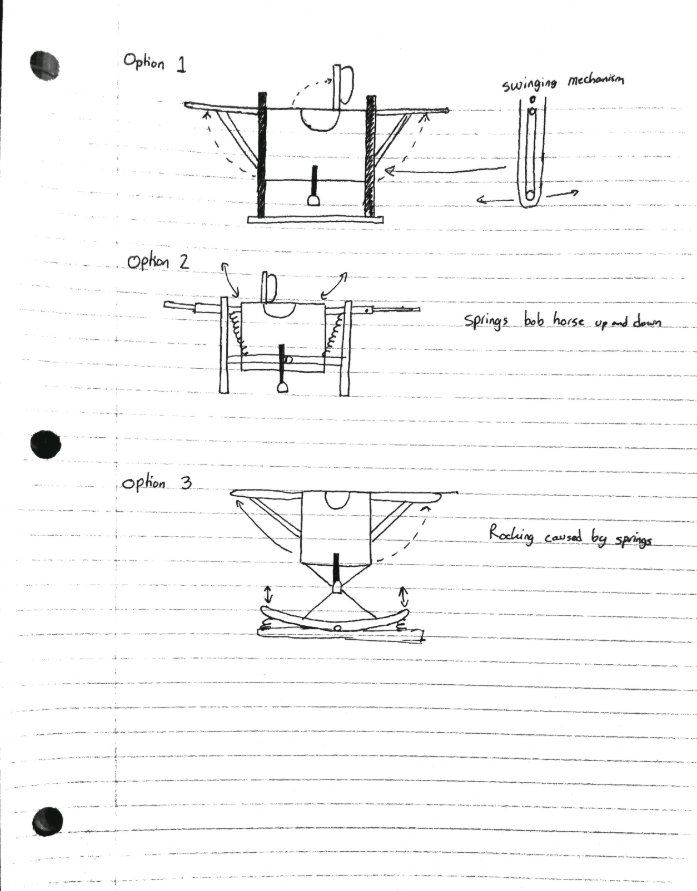 Option 1
swinging mechanism
Option 2
Springs bob horse up and down
Option 3
Rocking caused by springs